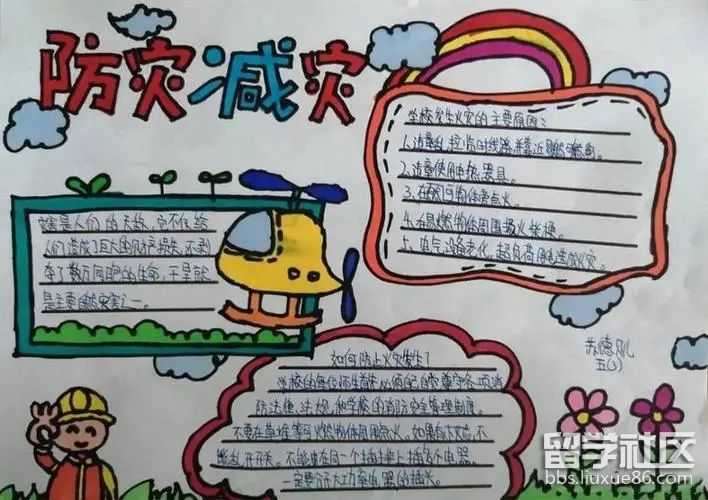 防灾减灾
学校发生火灾的主要原因:
1.违章乱拉临时线路并靠近易燃
2.违章使用电热器具。
3.在可燃物体旁点火。
4.在易燃物体周围吸火柴梗。
5.电气设备老化,超负荷用电造成火灾。
是人们的天敌,它不仅给
人们造成了巨大的财产损失,不剥
夺了数万同胞的生命,干旱就
是主要自然灾害之一。
如何防止火灾发生?
学校的每位师生首先必须自觉遵守各项消
防法律、法规,和学校的消防安全管理制度。
不要在草堆等可燃物体周围点火。如果
能乱开开关。不能在同一个插排上插多个电器,
一定要分开大功率电器的插头。
五(3)
留学社区
bbs.liuxue86.com